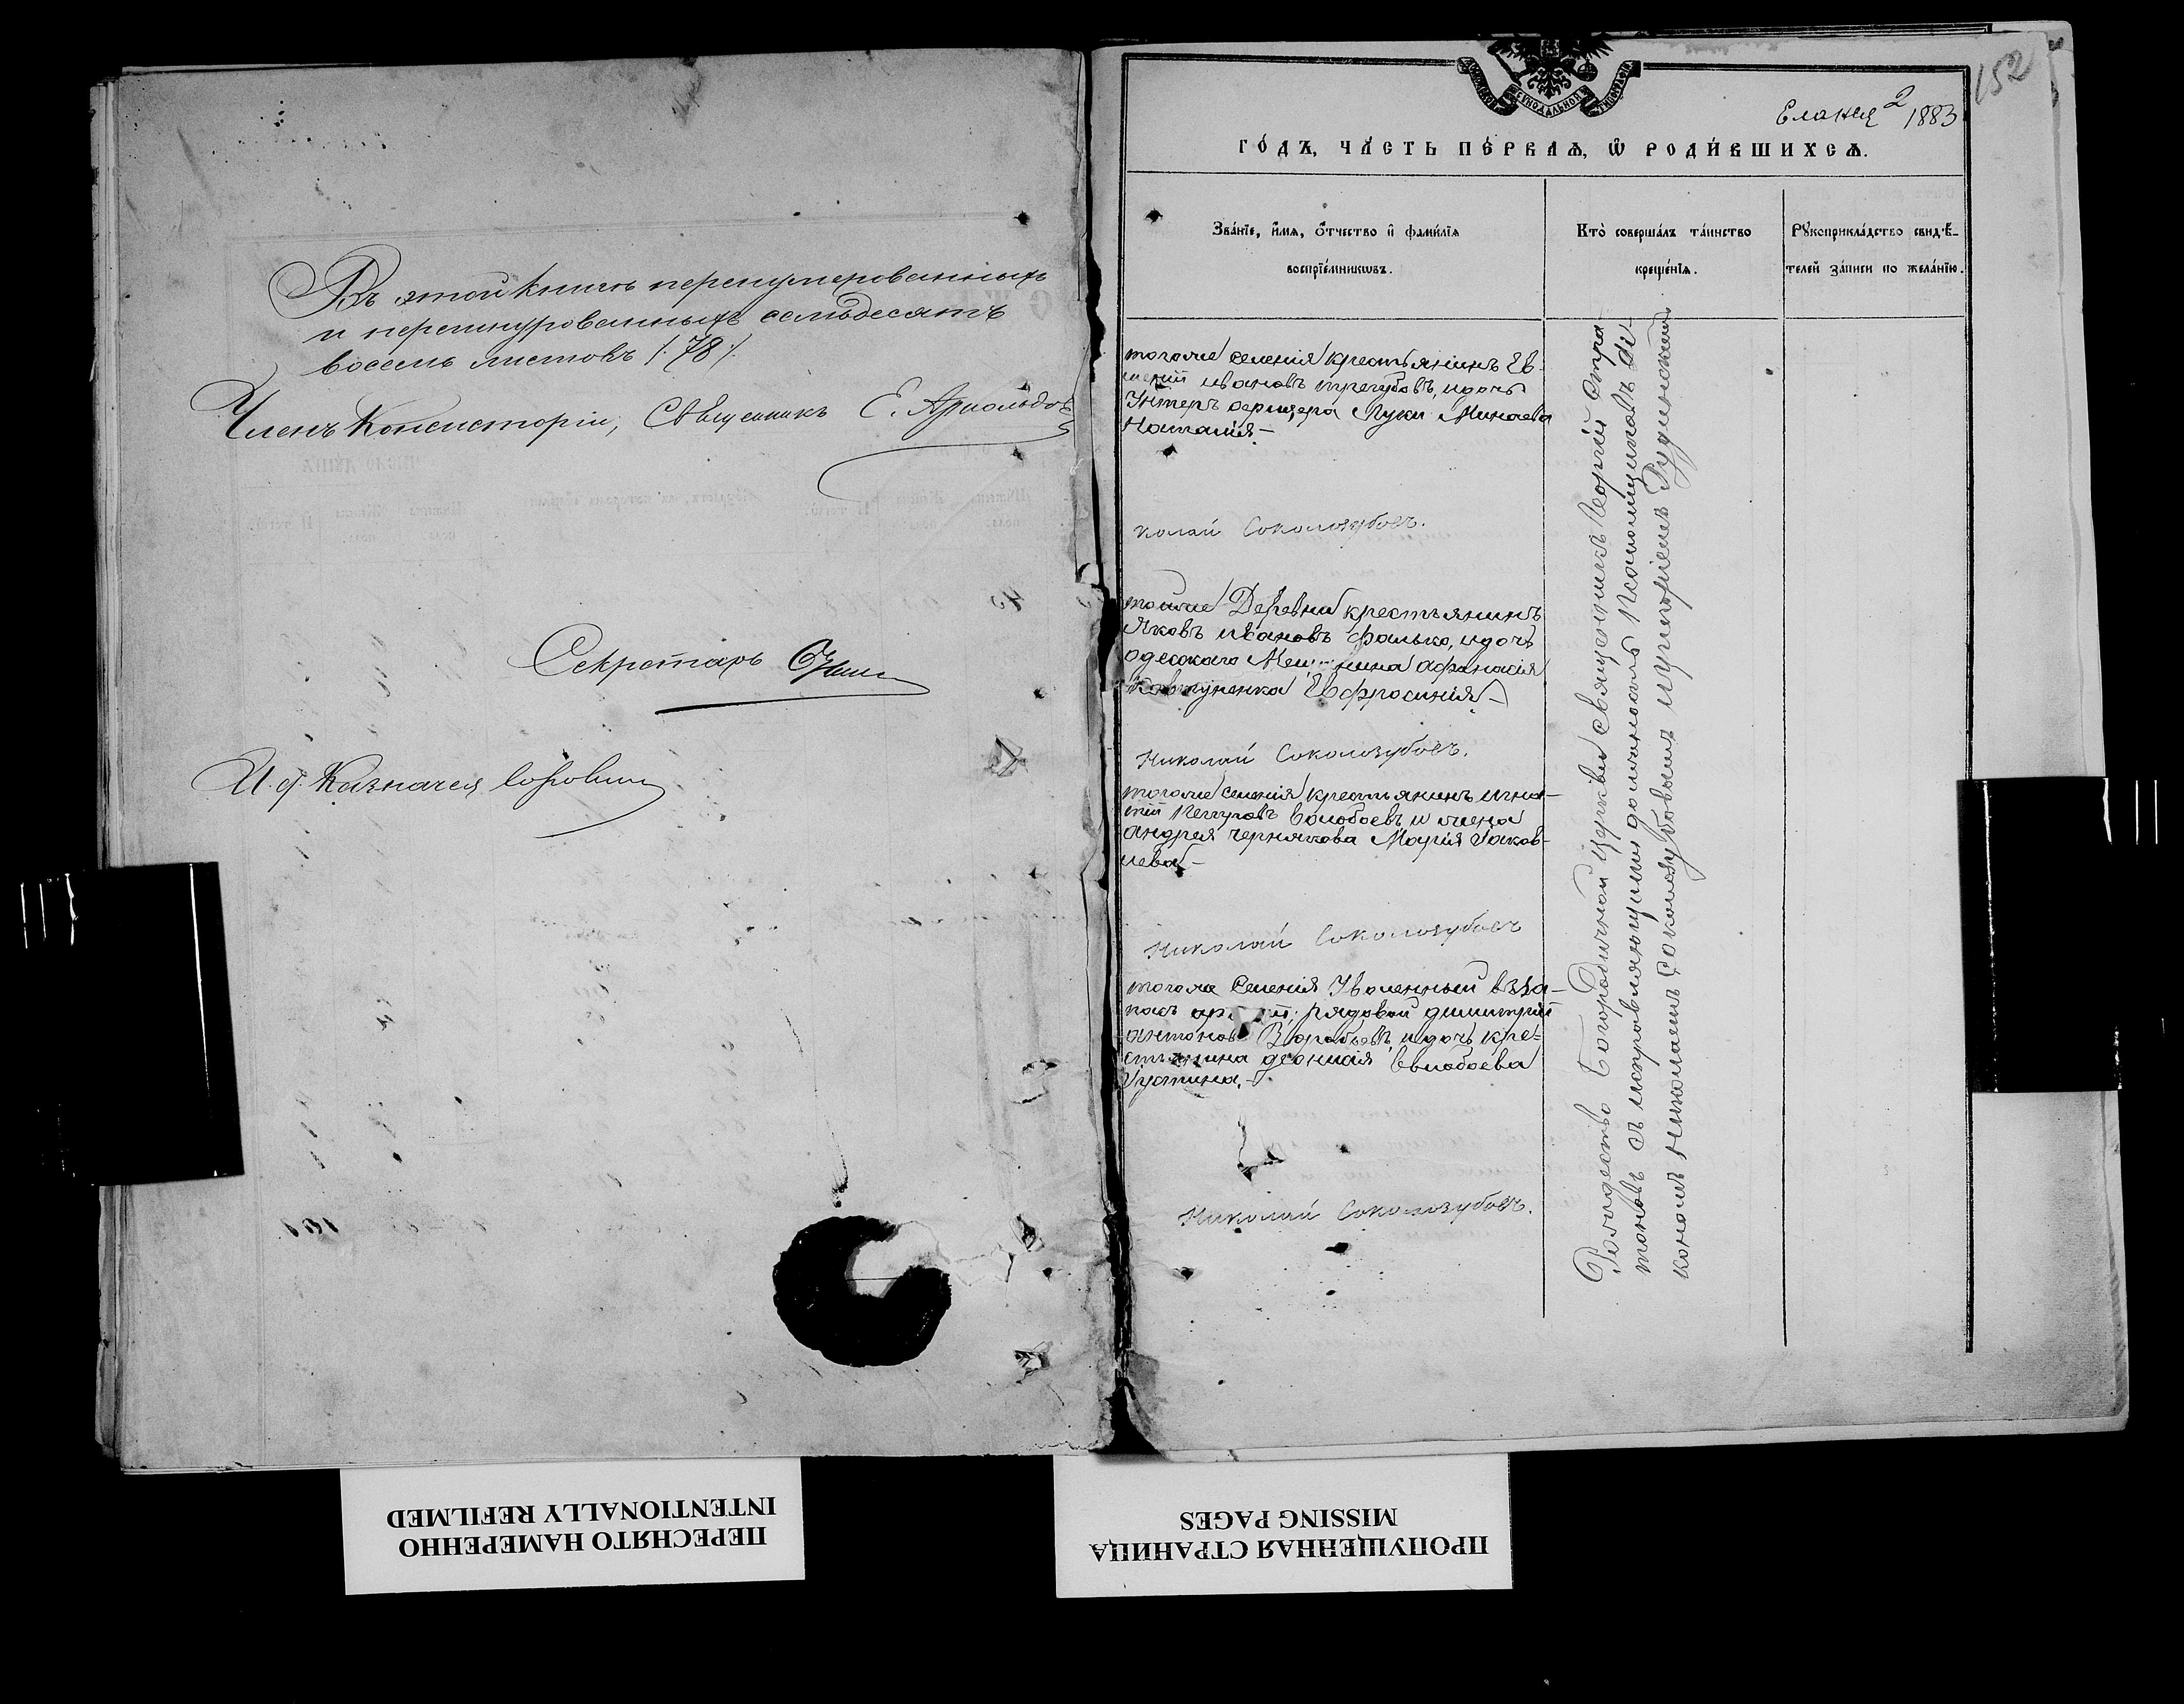 Въ этой книгѣ перенумерованныхъ
и перешнурованныхъ семьдесятъ
восемь листовъ /:78:/.
Членъ Консисторіи, Священникъ Е. Арнольдовъ
Секретарь
И. д. Казначея
152
Еланея 2 1883
СѴНОДАЛЬНОЙ
ГО́ДЪ, ЧА́СТЬ ПЕ́РВАѦ, Ѡ҆ РОДИ́ВШИХСѦ.
Зва́нїе, и҆́мѧ, ѻ҆́тчество и҆ фами́лїѧ
воспрїе́мникѡвъ.
Кто̀ соверша́лъ та́инство
креще́нїѧ.
Рꙋкоприкла́дство свидѣ́-
телей за́писи по жела́нїю.
тогоже селенія крестьянинъ Ев-
ивановъ трегубовъ, и дочь
Унтеръ офицера Луки Минаева
Наталія –
колай Соколозубовъ.
тойже Деревни крестьянинъ
Яковъ ивановъ Фалько, и дочь
одесскаго афанасія
Ковтуненка Евфросинія –
Николай Соколозубовъ.
тогоже селенія крестьянинъ игна-
тій Петровъ Волобоевъ и жена
андрея чернякова Марія Яков-
лева –
Николай Соколозубовъ
тогоже Селенія Уволенный в запа-
пасъ рядовой димитрій
антоновъ Воробьевъ, и дочь кре-
стьянина Волобоева
Іустина. –
Николай Соколозубовъ.
Рождество Богородичной церкви священникъ Георгій Стра-
тоновъ съ исправляющими должность псаломщиковъ ді-
кономъ Николаемъ Соколозубовымъ и
ПЕРЕСНЯТО НАМЕРЕННО
INTENTIONALLY REFILMED
ПРОПУЩЕННАЯ СТРАНИЦА
MISSING PAGES